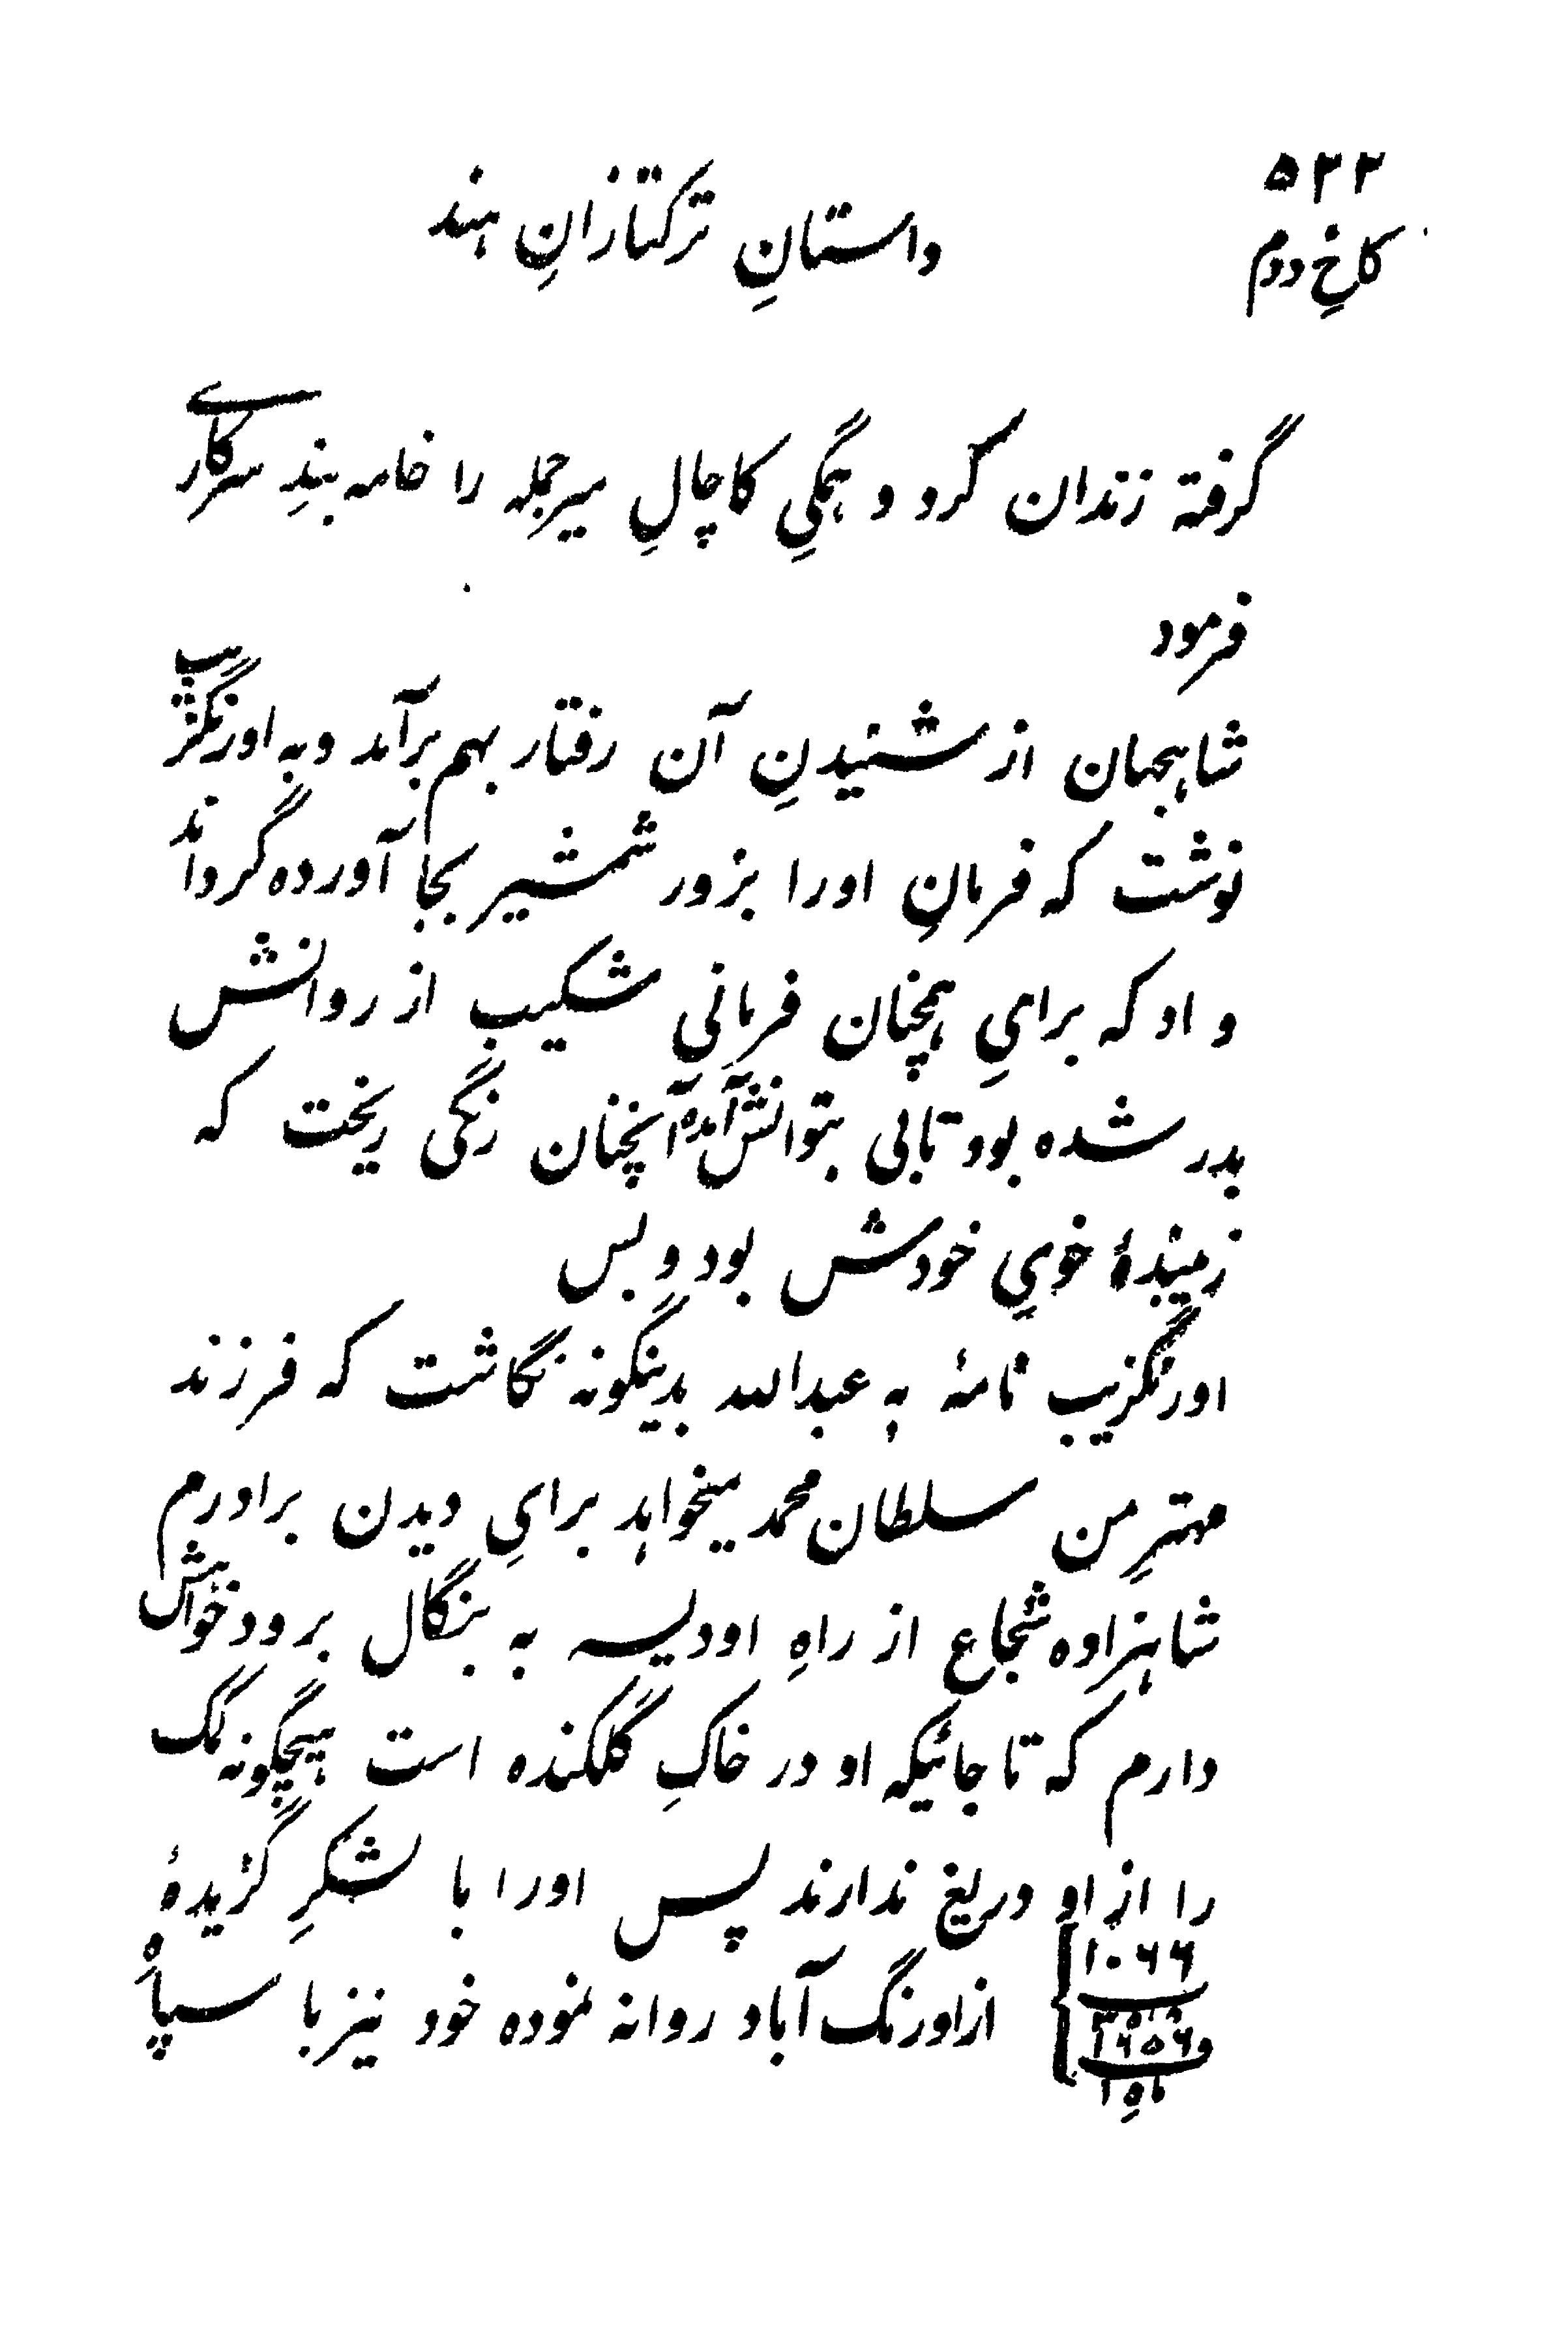 ۵۳۲
کاخِ دوم
داستانِ ترکتازانِ هند
گرفته زندان کرد و همگیِ کاچالِ میرجمله را خامه بندِ سرکاری
فرمود
شاهجهان از شنیدنِ آن رفتار بهم برآمد و به اورنگزیب
نوشت که فرمانِ اورا بزور شمشیر بجا آورده گرداند
و او که برایِ همچنان فرمانی شکیب از روانش
بدر شده بود تابی بتوانش آمده آنچنان رنگی ریخت که
زیبندهٔ خویِ خودش بود و بس
اورنگزیب نامهٔ به عبدالله بدینگونه نگاشت که فرزند
مهترِ من سلطان محمد میخواهد برایِ دیدن برادرم
شاهزاده شجاع از راهِ اودیسه به بنگال برود خواهش
دارم که تا جائیکه او در خاکِ گلکنده است هیچگونه کمک
را از او دریغ ندارند پس اورا با لشکرِ گزیدهٔ
از اورنگ آباد روانه نموده خود نیز با سپاهِ
۱۰۶۶
و ۱۶۵۶
ماهِ ۱